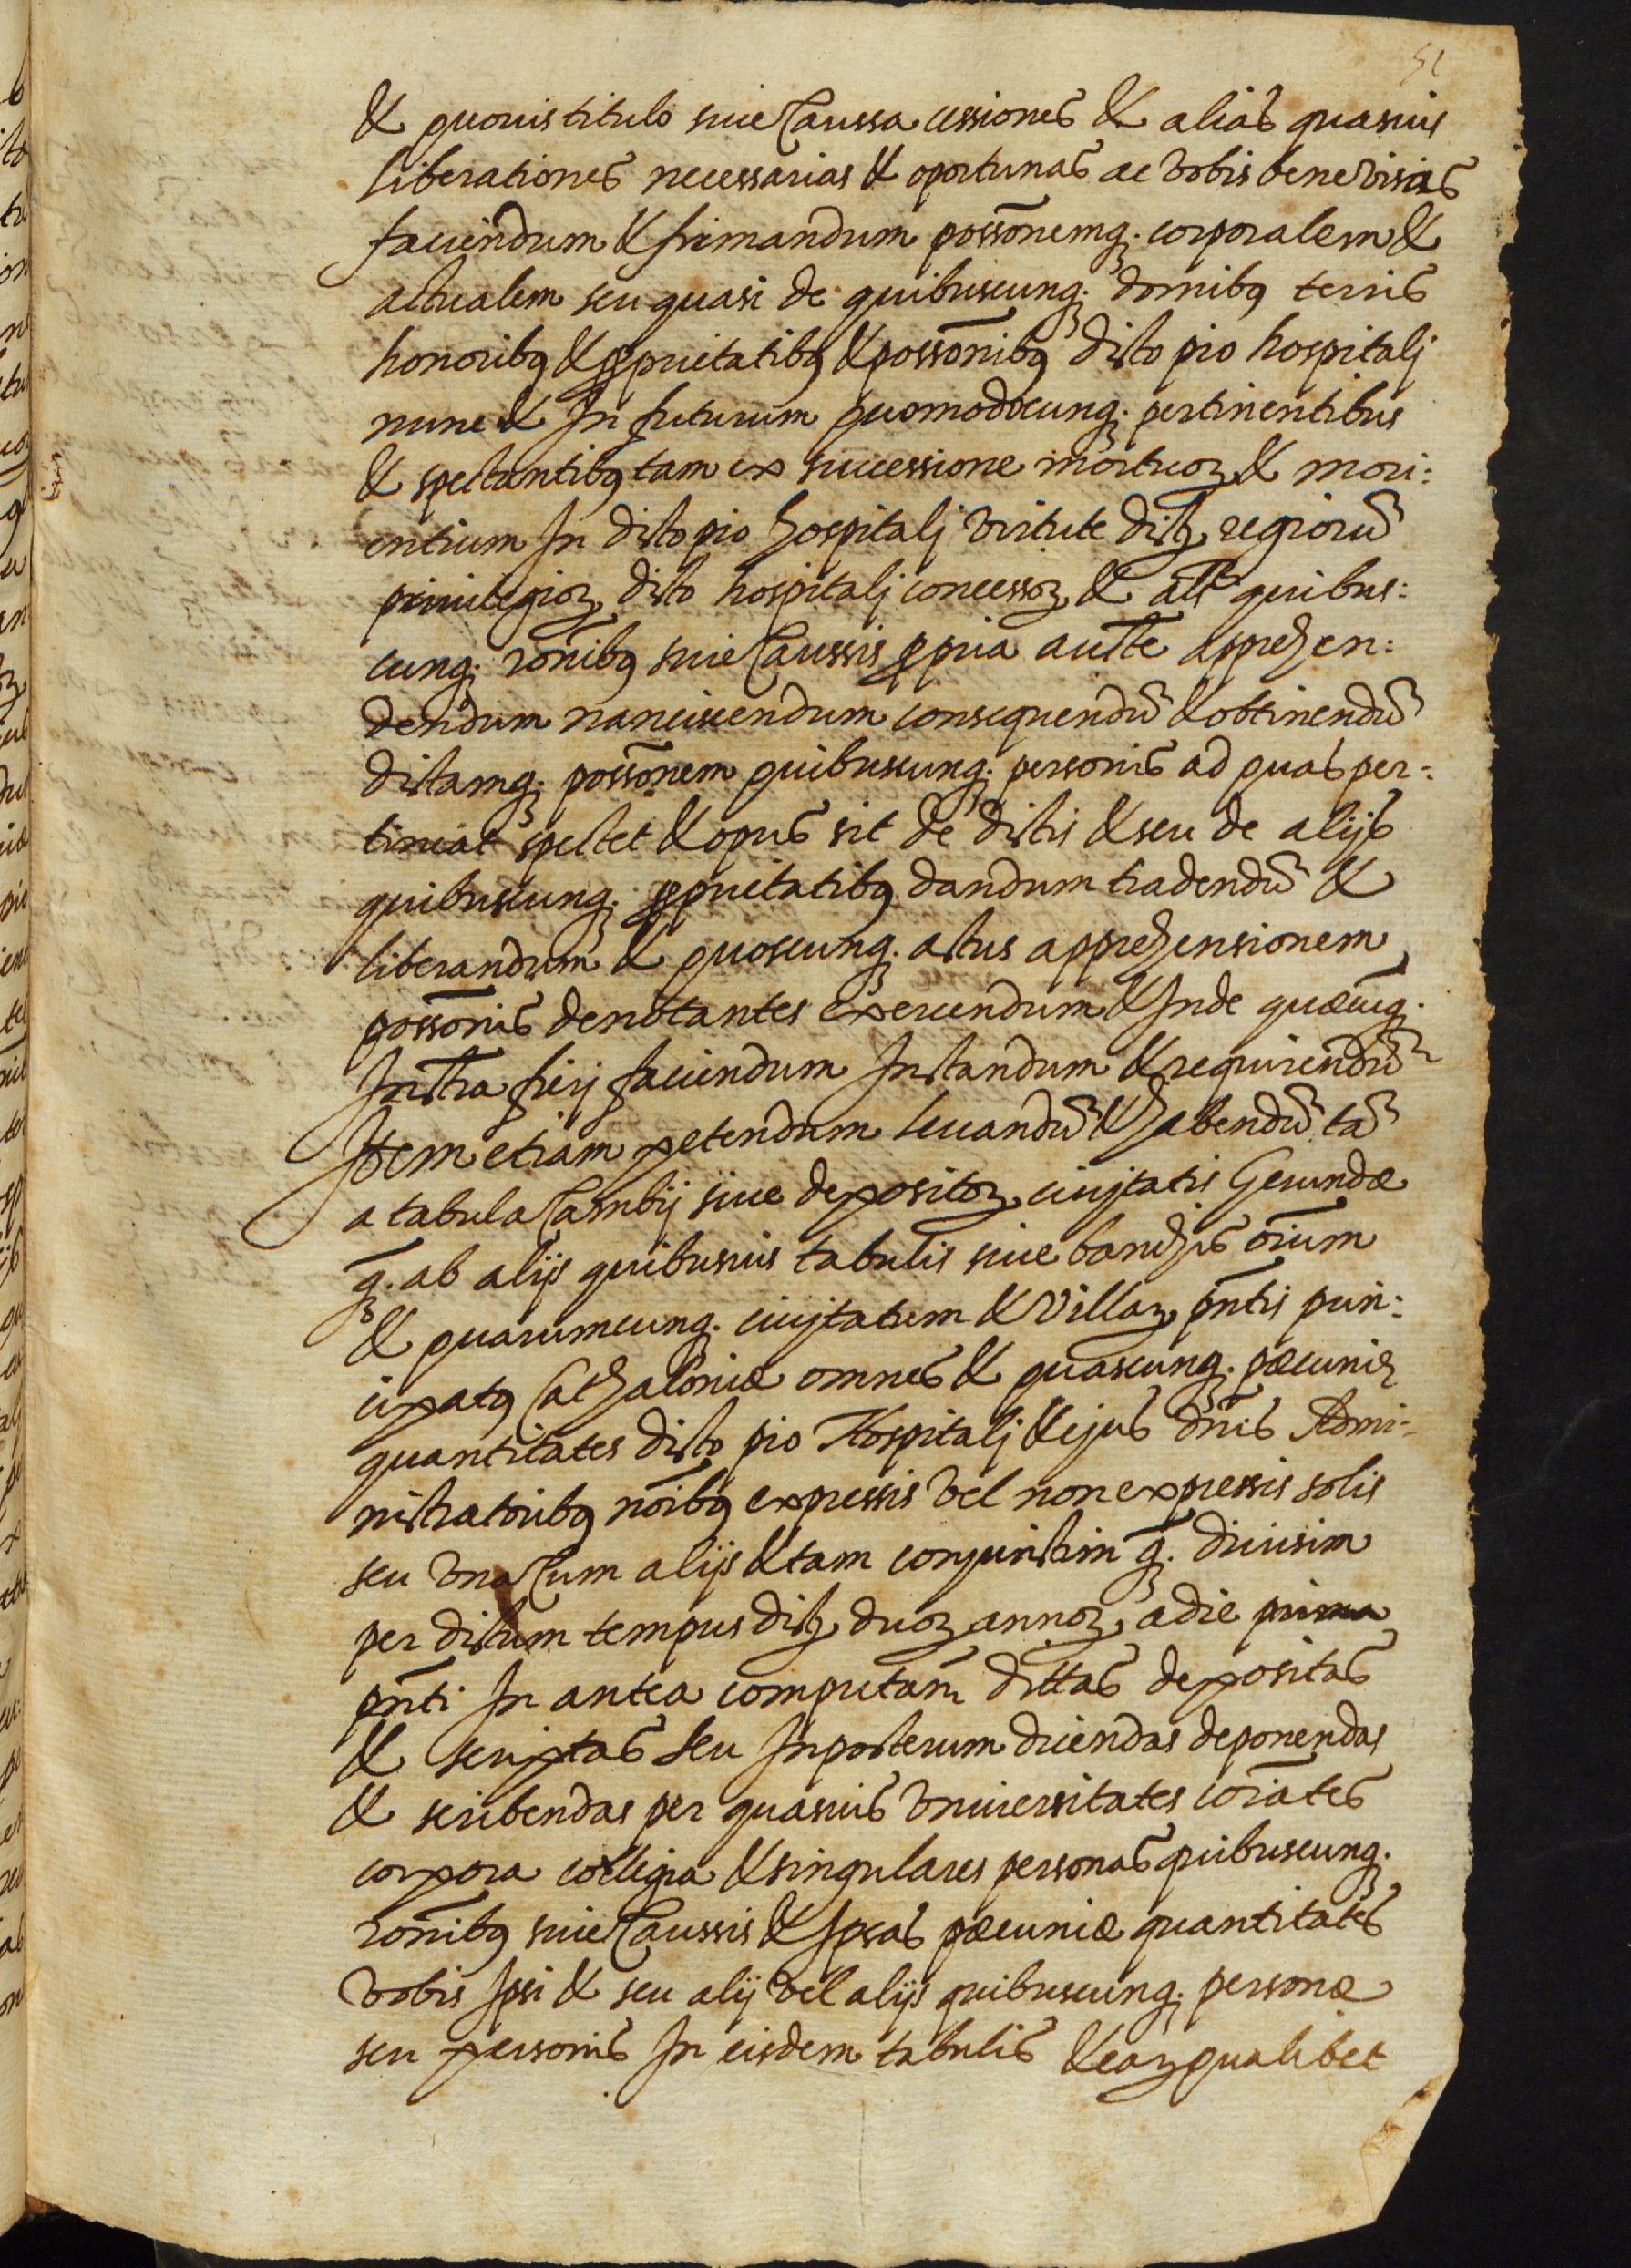 51
& quouis titulo siue Caussa cessiones & alias quasuis
liberationes necessarias & oportunas ac vobis bene visas
faciendum & firmandum possōnemq. corporalem &
actualem seu quasi de quibuscunq. domibꝰ terris
honoribꝰ & ꝓprietatibꝰ & possōnibꝰ dicto pio hospitalj
nunc & In futurum quomodocunq. pertinentibus
& spectantibꝰ tam ex successione mortuoꝝ & mori:
entium In dicto pio hospitalj virtute dictoꝝ regiorū
priuilegioꝝ dicto hospitalj concessoꝝ & als̃ quibus:
cunq. rōnibꝰ siue Caussis ꝓpria autte apprehen:
dendum nanciscendum consequendū & obtinendū
dictamq. possōnem quibuscunq. personis ad quas per:
tineat spectet & opus sit de dictis & seu de alijs
quibuscunq. ꝓprietatibꝰ dandum tradendū &
liberandum & quoscunq. actus apprehensionem
possōnis denotantes exercendum & Inde quæcūq.
Instra fierj faciendum Instandum & requirendū
Item etiam petendum leuandū & habendū tā
a tabula Cambij siue depositoꝝ ciujtatis Gerundæ
q̃. ab alijs quibusuis tabulis siue banchis oīum
& quarumcunq. ciujtatum & Villaꝝ p̃ntis prin:
cipatꝰ Cathaloniæ omnes & quascunq. pæcuniæ
quantitates dicto pio Hospitalj & ejus dn̄is Admi:
nistratoribꝰ nōibꝰ expressis vel non expressis solis
seu vna Cum alijs & tam conjunctim q̃. diuisim
per dictum tempus dictoꝝ duoꝝ annoꝝ a die prima
p̃nti In antea computañ dittas depositas
& scriptas seu Inposterum dicendas deponendas
& scribendas per quasuis vniuersitates cōiātes
corpora collegia & singulares personas quibuscunq.
rōnibꝰ siue Caussis & Ipsas pæcuniæ quantitates
vobis Ipsi & seu alij vel alijs quibuscunq. personæ
seu personis In eisdem tabulis & eaꝝ qualibet